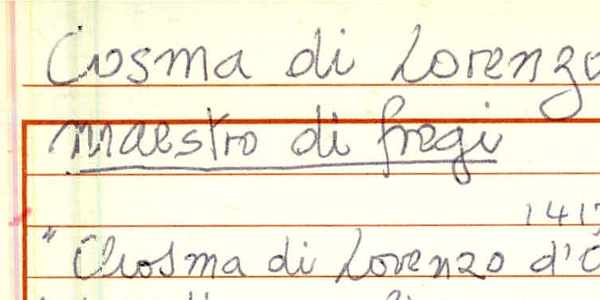 Cosma di Lorenzo
maestro di fregi
141
" Chosma di Lorenzo d'